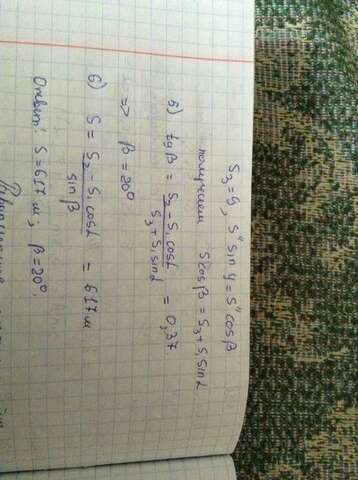 S₃ = S, S" sin γ = S" cos β
получаем S cos β = S₃ + S₁ sin α
б) tg β = (S₂ − S₁ cos α) / (S₃ + S₁ sin α) = 0,37
=> β = 20°
6) S = (S₂ − S₁ cos α) / sin β = 617 м
Ответ: S = 617 м; β = 20°.